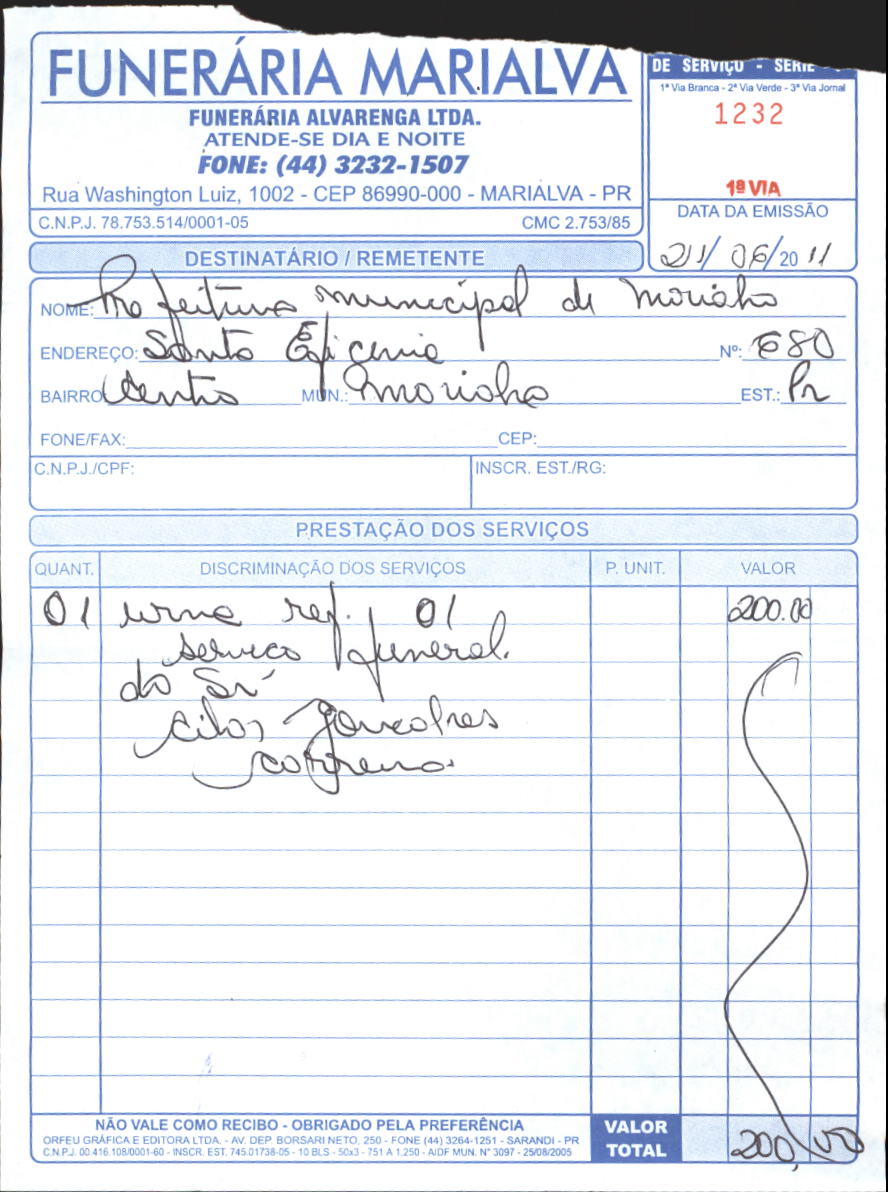 FUNERÁRIA MARIALVA
FUNERÁRIA ALVARENGA LTDA.
ATENDE-SE DIA E NOITE
FONE: (44) 3232-1507
Rua Washington Luiz, 1002 - CEP 86990-000 - MARIALVA - PR
C.N.P.J. 78.753.514/0001-05 CMC 2.753/85
DE SERVIÇO - SÉRIE
1ª Via Branca - 2ª Via Verde - 3ª Via Jornal
1232
1ª VIA
DATA DA EMISSÃO
21/ 06/20 11
DESTINATÁRIO / REMETENTE
NOME: Prefeitura municipal de
ENDEREÇO: Santa Efigenia Nº: 680
BAIRRO Centro MUN.: EST.: Pr
FONE/FAX: CEP:
C.N.P.J./CPF: INSCR. EST./RG:
PRESTAÇÃO DOS SERVIÇOS
QUANT. DISCRIMINAÇÃO DOS SERVIÇOS P. UNIT. VALOR
01 urna ref. 01 200.00
serviço funeral.
do Sr
Gonçalves
NÃO VALE COMO RECIBO - OBRIGADO PELA PREFERÊNCIA
ORFEU GRÁFICA E EDITORA LTDA. - AV. DEP. BORSARI NETO, 250 - FONE (44) 3264-1251 - SARANDI - PR
C.N.P.J. 00.416.108/0001-60 - INSCR. EST. 745.01738-05 - 10 BLS - 50x3 - 751 A 1.250 - AIDF MUN. N° 3097 - 25/08/2005
VALOR TOTAL 200,00